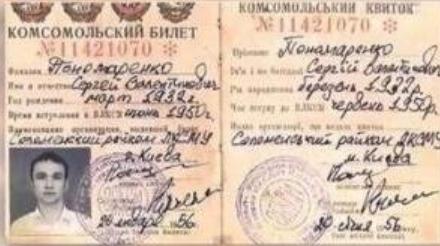 КОМСОМОЛЬСКИЙ БИЛЕТ
№11421070
Фамилия Пономаренко
Имя и отчество Сергей Валентинович
Год рождения март 1932 г.
Время вступления в ВЛКСМ июнь 1950 г.
Наименование организации, выдавшей билет
Соломенский райком ЛКСМУ
г. Киева
26 января 56 г.
КОМСОМОЛЬСЬКИЙ КВИТОК
№11421070
Прізвище Пономаренко
Ім'я і по батькові Сергій Валентинович
Рік народження березень 1932 р.
Час вступу до ВЛКСМ червень 1950 р.
Назва організації, що видала квиток
Соломенський райком ЛКСМУ
м. Києва
56 р.